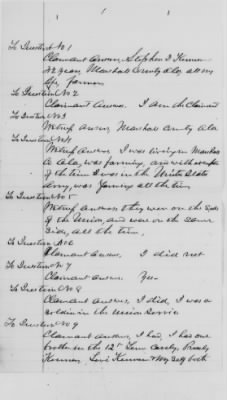 To Question No 1
Claimant Answers, Stephen D Kennon
42 years Marshall County Ala all my
life, farmer
To Question No 2
Claimant Answers. I am the Claimant
To Question No 3
Answers, Marshall County Ala
To Question No 4
Answers I was living in Marshall
Co Ala, was farming, and with
of the time I was in the United States
Army, was farming all the time
To Question No 5
Answers they were on the side
of the Union, and were on the same
side, all the time,
To Question No 6
Claimant Answers. I did not
To Question No 7
Claimant Answers. Yes
To Question No 8
Claimant Answers, I did, I was a
soldier in the Union Service
To Question No 9
Claimant Answers, I had, I has one
brother in the 12th Tenn Cavalry,
Kennon, Levi Kennon &amp; both